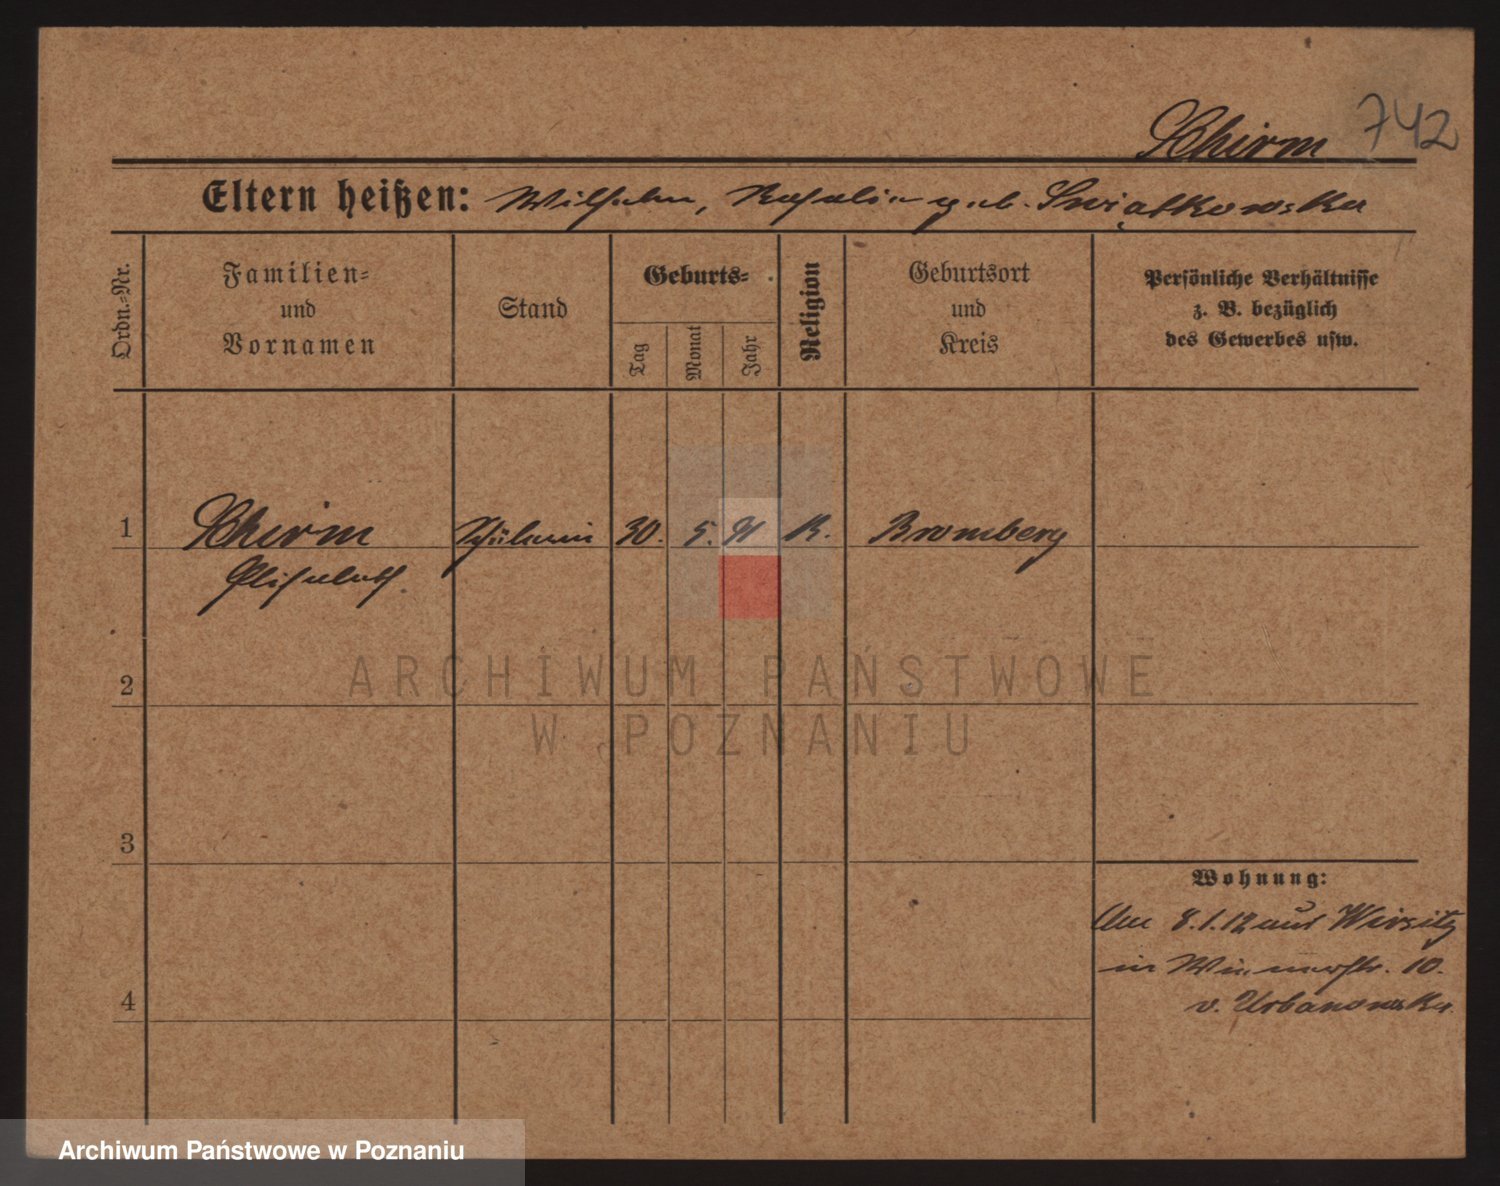 Schirm 742
Eltern heißen: Wilhelm, Rosalie geb. Świątkowska
Ordn.=Nr.
Familien=
und
Vornamen
Stand
Geburts=
Tag
Monat
Jahr
Religion
Geburtsort
und
Kreis
Persönliche Verhältnisse
z. B. bezüglich
des Gewerbes usw.
1 Schirm Schülerin 30. 5. 91 K. Bromberg
Elisabeth.
2
3
4
Wohnung:
Am 8.1.12 aus Wirsitz
in 10.
v. Urbanowska
ARCHIWUM PAŃSTWOWE
W POZNANIU
Archiwum Państwowe w Poznaniu